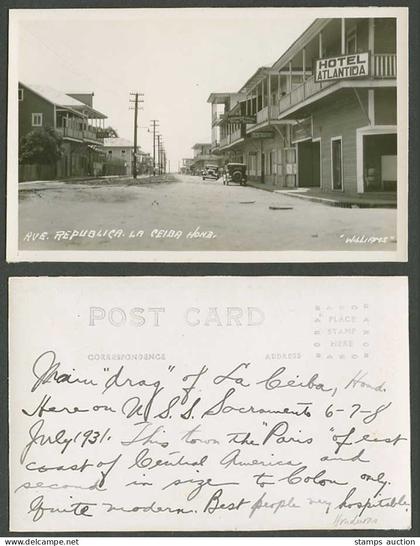 HOTEL
ATLANTIDA
AVE. REPUBLICA. LA CEIBA HOND.
"WILLIAMS"
POST CARD
CORRESPONDENCE
ADDRESS
PLACE
STAMP
HERE
Main "drag" of La Ceiba, Hond.
Here on U.S.S. Sacramento 6-7-8
July 1931. This town the "Paris" of east
coast of Central America and
second in size to Colon only.
Quite modern. Best people very hospitable.
Honduras
© stamps auction